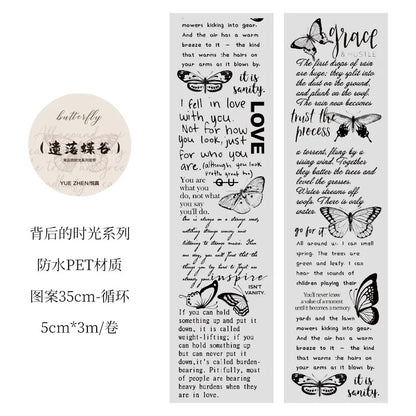 butterfly
（遗落蝶谷）
YUE ZHEN/悦真
背后的时光系列
防水PET材质
图案35cm-循环
5cm*3m/卷
mowers kicking into gear.
And the air has a warm
breeze to it – the kind
that warms the hairs on
your arms as it blows by.
it is
sanity.
I fell in love
with you.
Not for how
you look, just
for who you
are. (although you look
pretty great too)
LOVE
You are
what you
do, not what
you say
you'll do.
inspire
ISN'T
VANITY.
If you can hold
something up and put it
down, it is called
weight-lifting; if you
can hold something up
but can never put it
down, it's called burden-
bearing. Pitifully, most
of people are bearing
heavy burdens when they
are in love.
grace
& HUSTLE
The first drops of rain
are huge; they splat into
the dust on the ground,
and plunk on the roof.
The rain now becomes
trust the
process
a torrent, flung by a
rising wind. Together
they batter the trees and
level the grasses.
Water streams off
roofs.
go for it
All around us I can small
spring. The trees are
green and leafy. I can
hear the sounds of
children playing their
You'll never know
a value of a moment
until it becomes a memory.
yards and the lawn
mowers kicking into gear.
And the air has a warm
breeze to it – the kind
that warms the hairs on
your arms as it blows by.
it is
sanity.